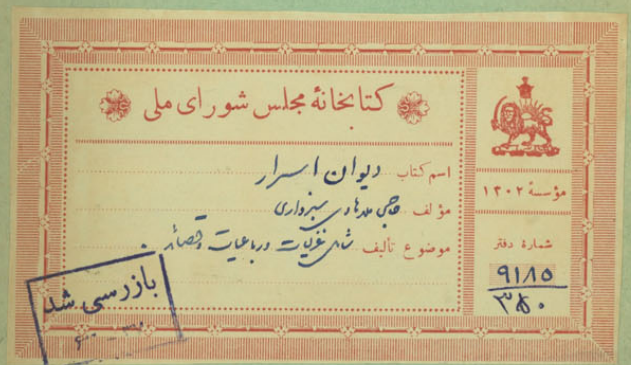 کتابخانهٔ مجلس شورای ملی
اسم کتاب دیوان اسرار
مؤلف حاجی ملا هادی سبزواری
موضوع تألیف شامل غزلیات و رباعیات و قصائد
مؤسسهٔ ۱۳۰۲
شمارهٔ دفتر
۹۱۸۵
بازرسی شد